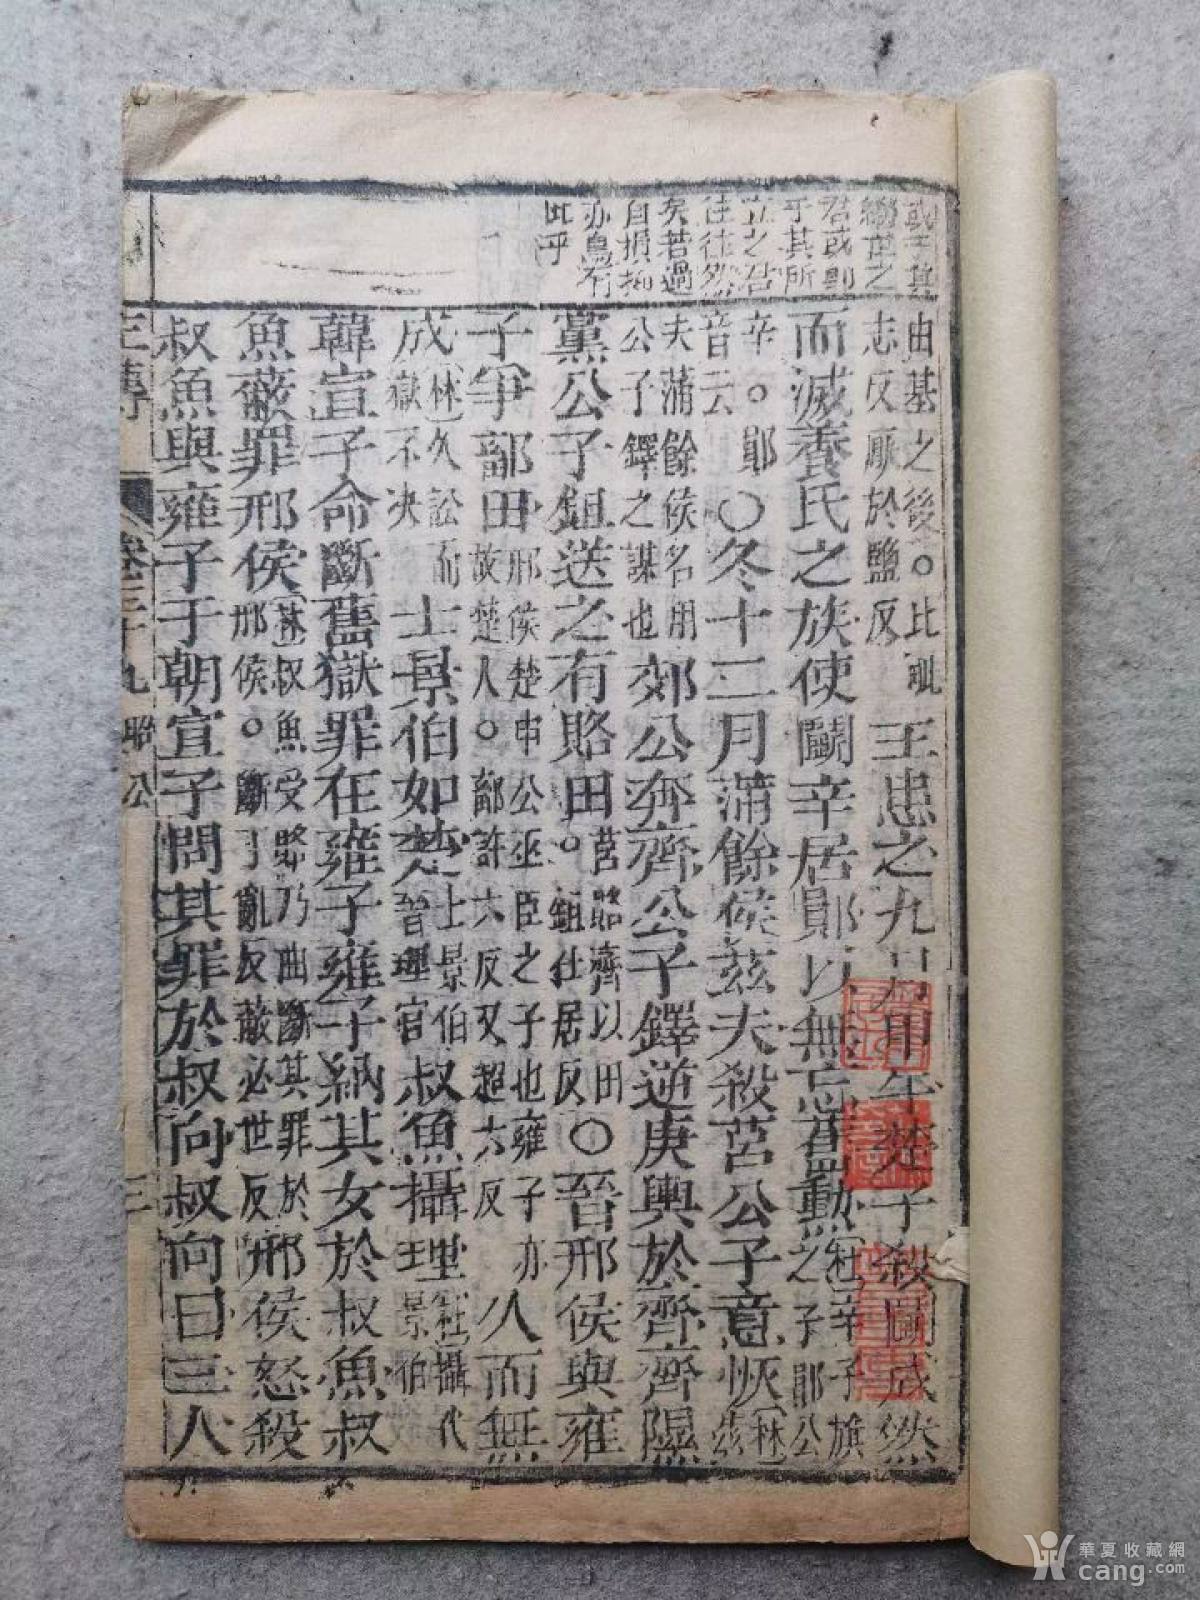 或于其
繼世之
君或則
乎其所
立之君
往往然
矣若過
自損抑
亦烏有
此乎
由基之後○比毗
志反厭於鹽反
王患之九月甲午楚子殺鬭成然
而滅養氏之族使鬭辛居鄖以無忘舊勳
杜辛子旗
之子鄖公
辛○鄖
音云
○冬十二月蒲餘侯茲夫殺莒公子意恢
林茲
夫蒲餘侯名用
公子鐸之謀也
郊公奔齊公子鐸逆庚輿於齊齊隰
黨公子鉏送之有賂田
莒賂齊以田
○鉏仕居反
○晉邢侯與雍
子爭鄐田
邢侯楚申公巫臣之子也雍子亦
故楚人○鄐許六反又超六反
久而無
成
林久訟而
獄不決
士景伯如楚
士景伯
晉理官
叔魚攝理
杜攝代
景伯
韓宣子命斷舊獄罪在雍子雍子納其女於叔魚叔
魚蔽罪邢侯
林叔魚受賂乃曲斷其罪於
邢侯○斷丁亂反蔽必世反
邢侯怒殺
叔魚與雍子于朝宣子問其罪於叔向叔向曰三人
左傳
卷三十九
昭公
三
華夏收藏網
cang.com